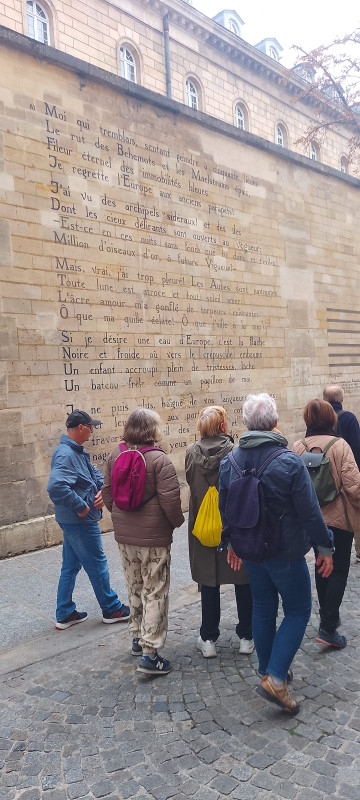 « Moi qui tremblais, sentant geindre à cinquante lieues
Le rut des Béhémots et les Maelstroms épais,
Fileur éternel des immobilités bleues,
Je regrette l'Europe aux anciens parapets!
J'ai vu des archipels sidéraux! et des îles
Dont les cieux délirants sont ouverts au vogueur:
-Est-ce en ces nuits sans fonds que tu dors et t'exiles,
Million d'oiseaux d'or, ô future Vigueur?-
Mais, vrai, j'ai trop pleuré! Les Aubes sont navrantes
Toute lune est atroce et tout soleil amer:
L'âcre amour m'a gonflé de torpeurs enivrantes
Ô que ma quille éclate! Ô que j'aille à la mer!
Si je désire une eau d'Europe, c'est la flache
Noire et froide où vers le crépuscule embaumé
Un enfant accroupi plein de tristesses, lâche
Un bateau frêle comme un papillon de mai.
Je ne puis plus, baigné de vos langueurs,
leur aux por
il des
yeux
nag